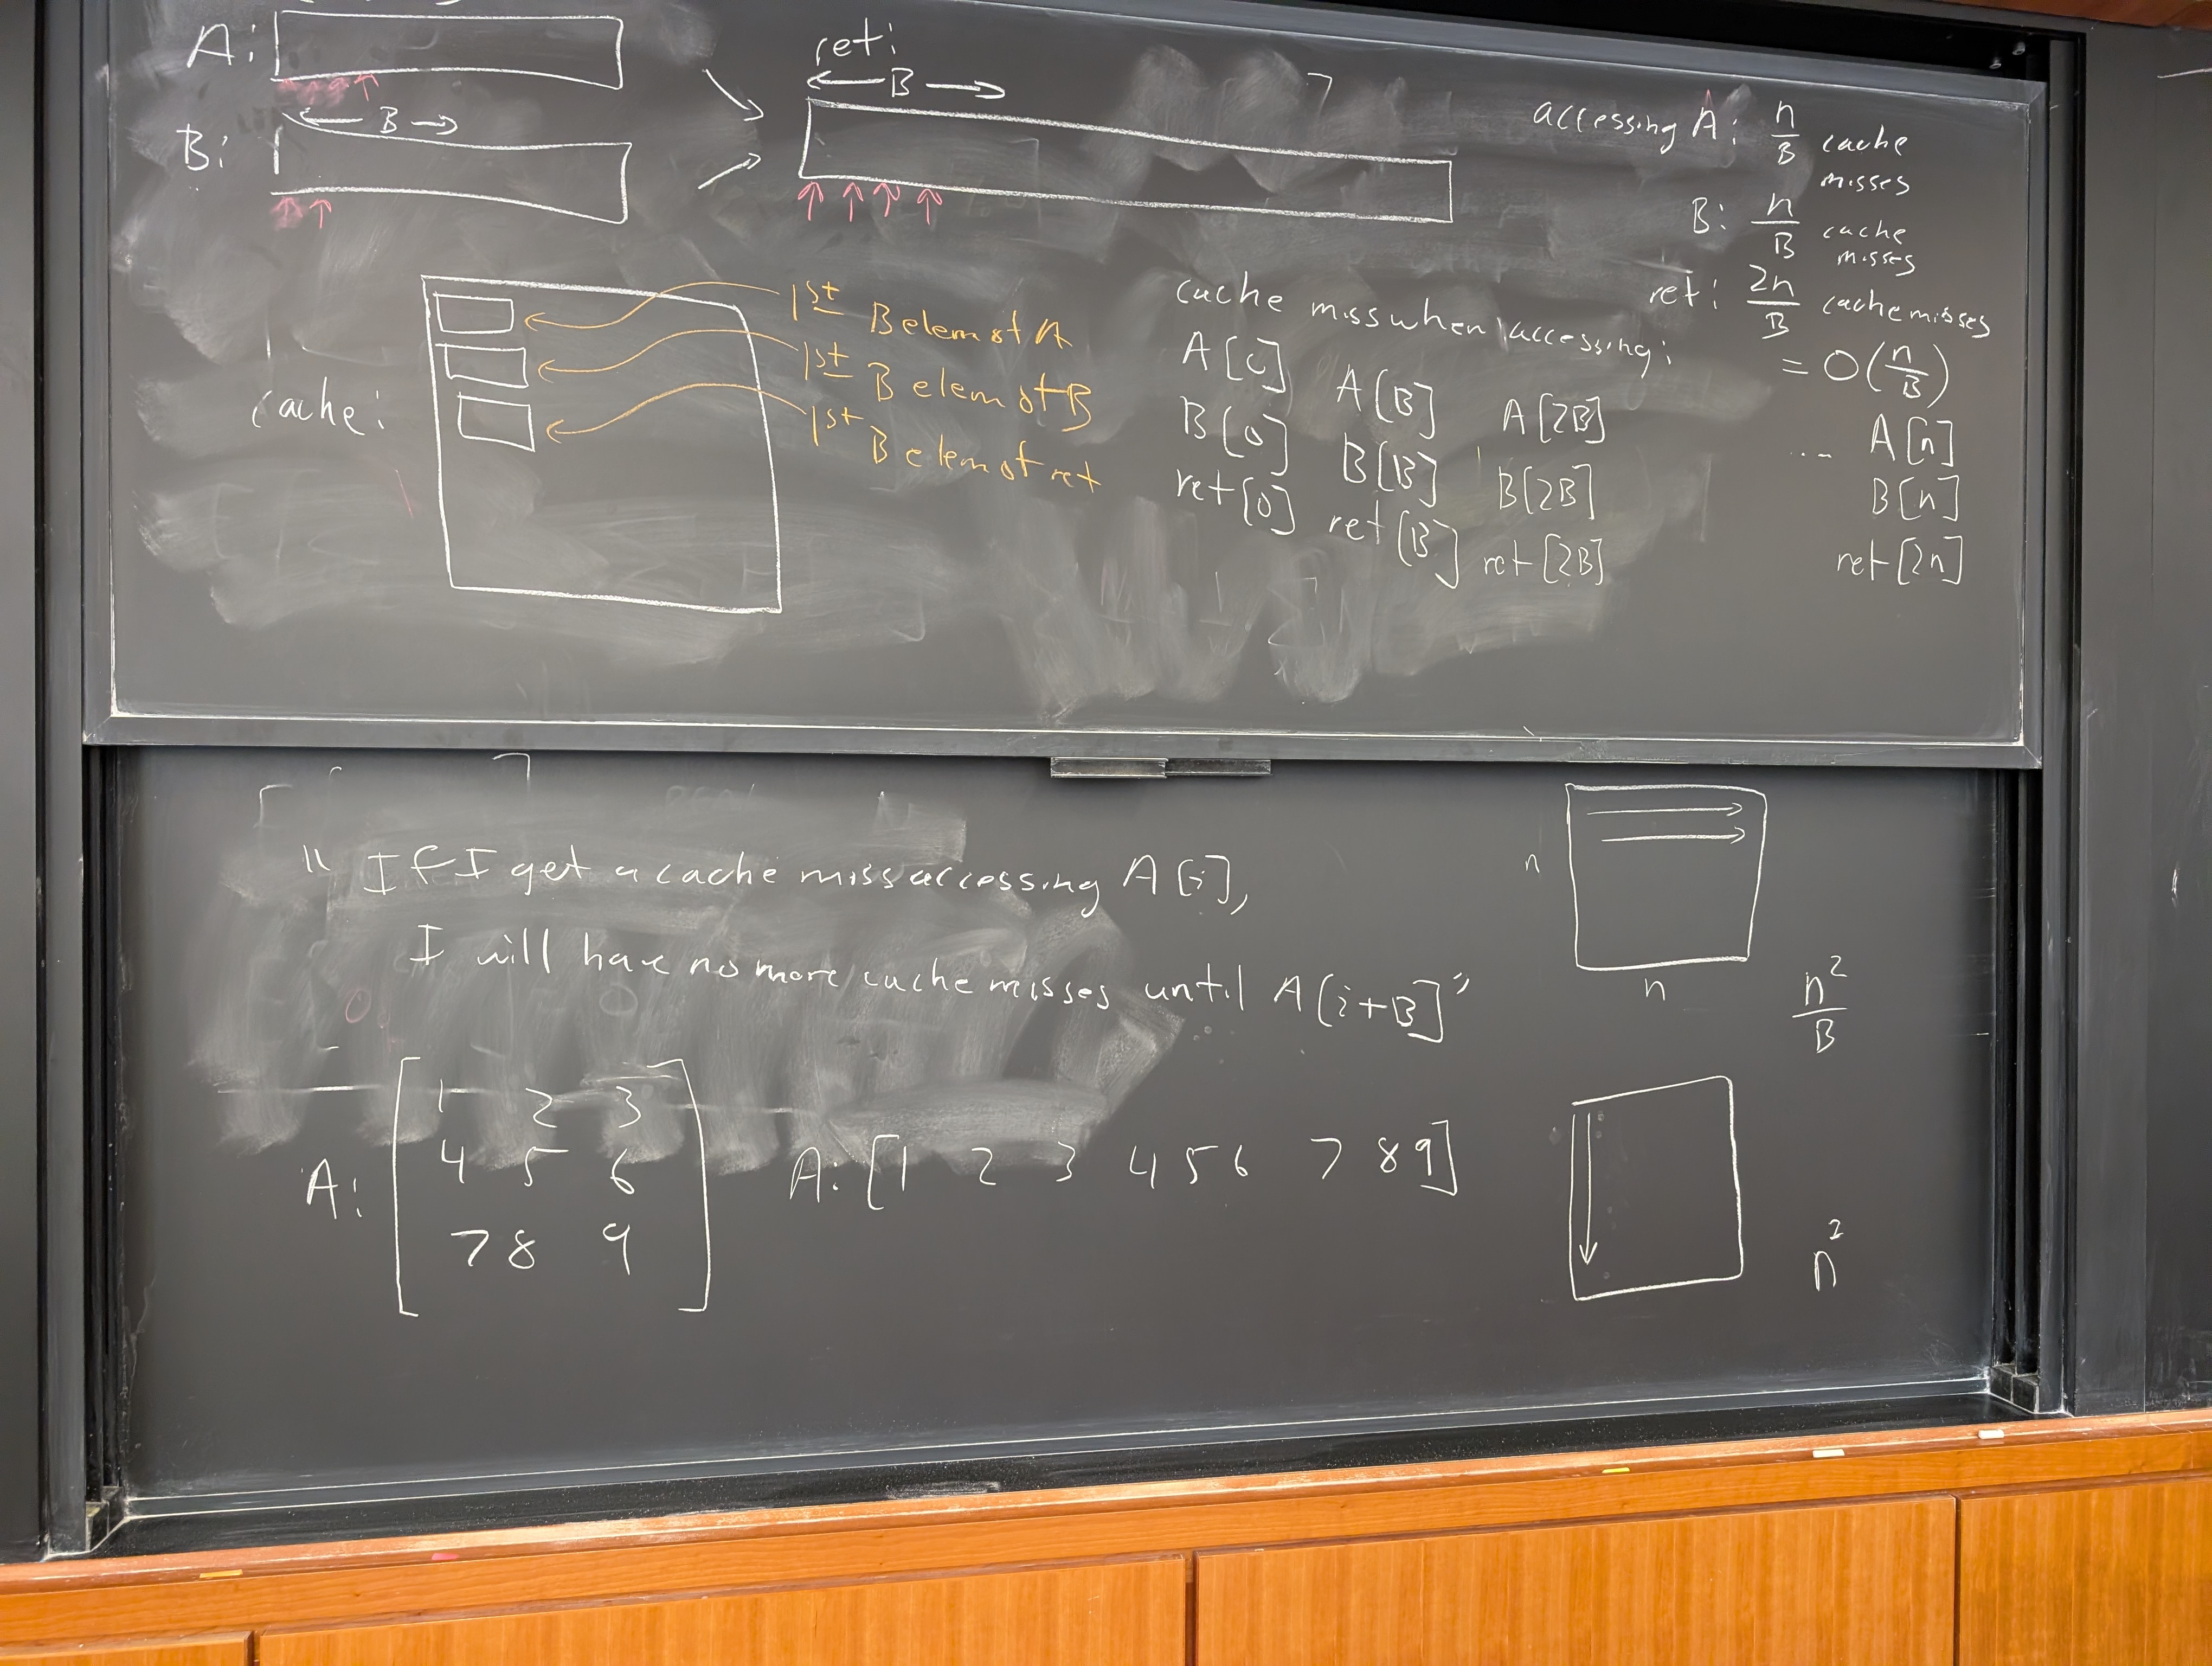 A:
← B →
B:
ret:
← B →
accessing A: n/B cache misses
B: n/B cache misses
ret: 2n/B cache misses
= O(n/B)
cache:
1st B elem of A
1st B elem of B
1st B elem of ret
cache miss when accessing:
A[0] A[B] A[2B] ... A[n]
B[0] B[B] B[2B] B[n]
ret[0] ret[B] ret[2B] ret[2n]
"If I get a cache miss accessing A[i],
I will have no more cache misses until A[i+B]"
n
n
n²/B
A: [1 2 3
4 5 6
7 8 9]
A: [1 2 3 4 5 6 7 8 9]
n²